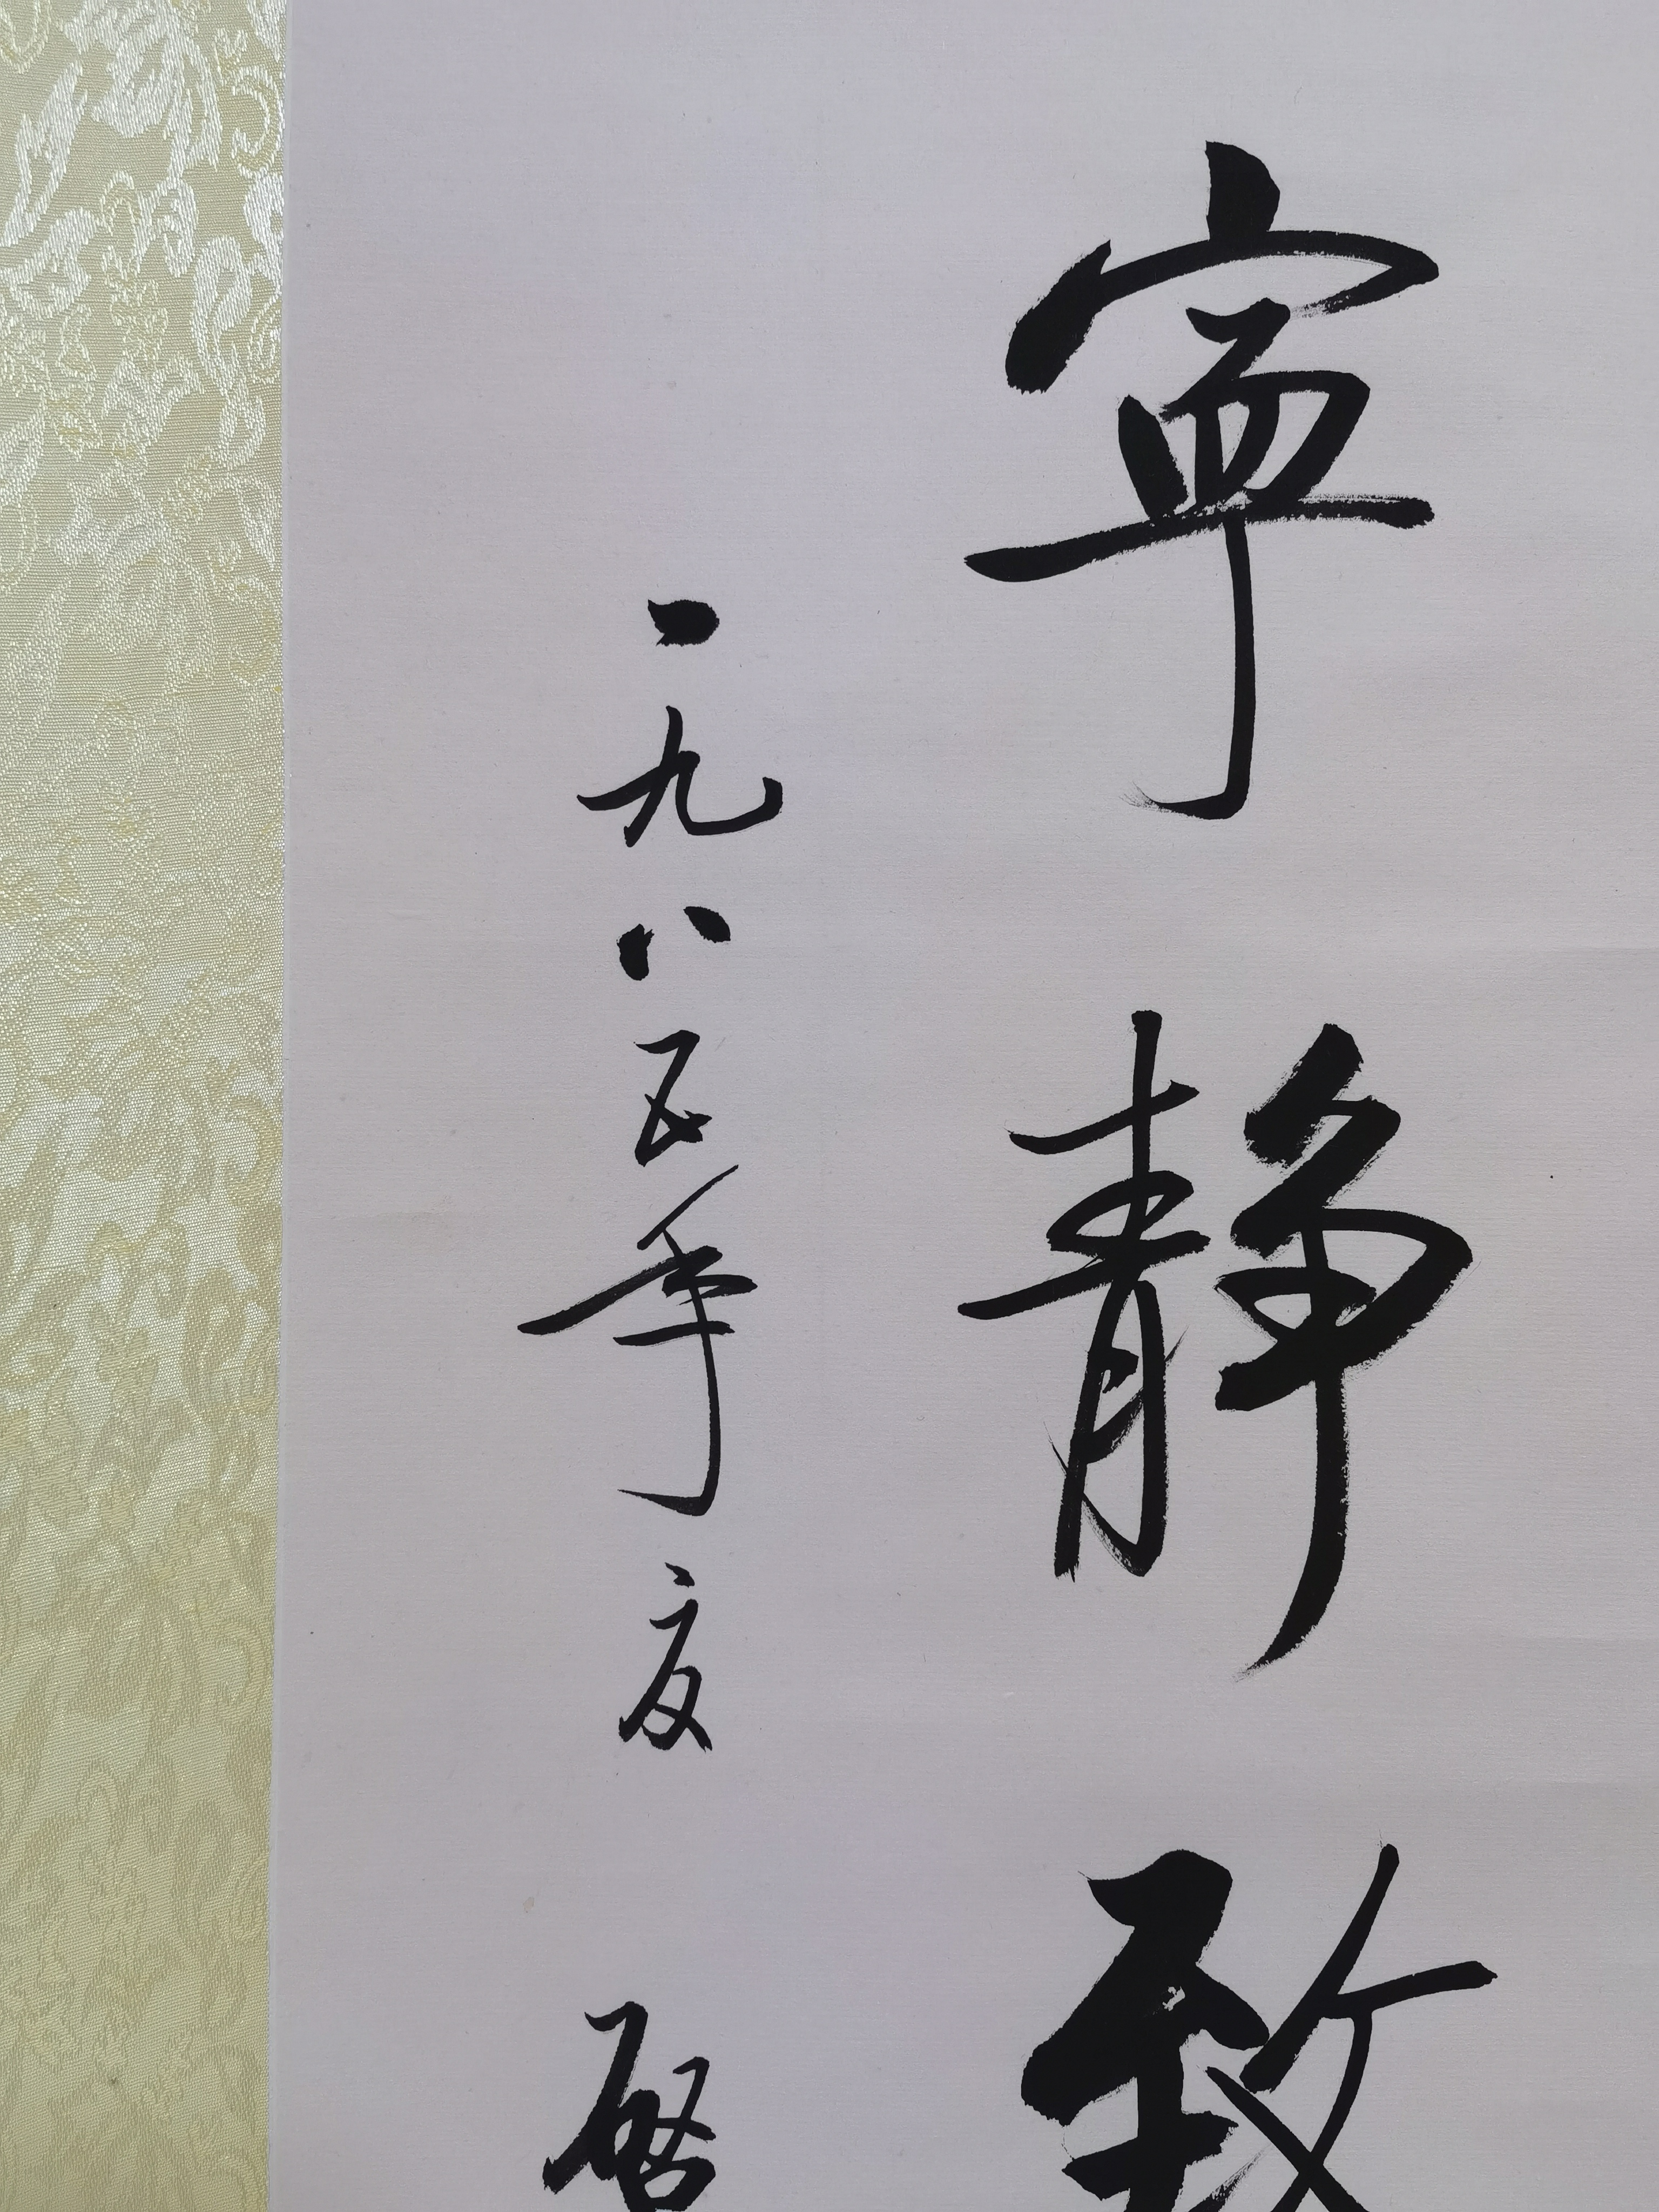 寧静致
一九八五年夏 啓